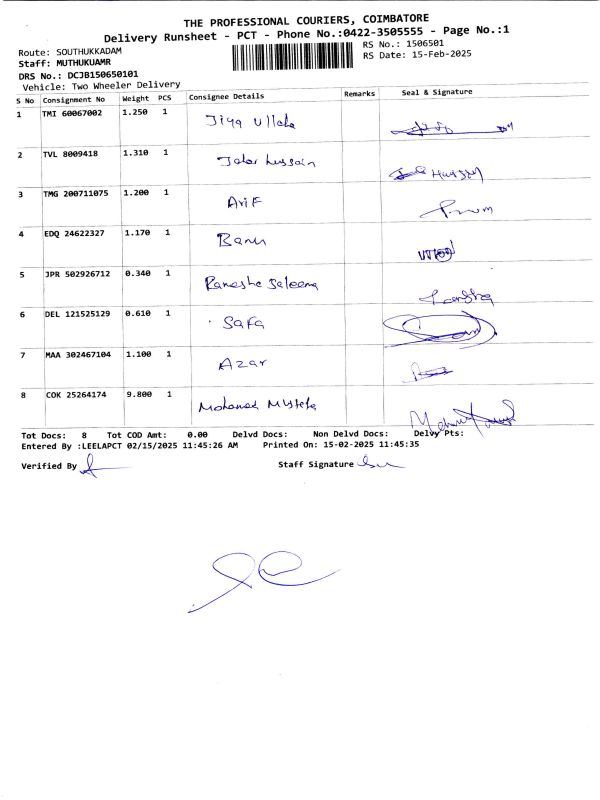 THE PROFESSIONAL COURIERS, COIMBATORE
Delivery Runsheet - PCT - Phone No.:0422-3505555 - Page No.:1
Route: SOUTHUKKADAM RS No.: 1506501
Staff: MUTHUKUAMR RS Date: 15-Feb-2025
DRS No.: DCJB150650101
Vehicle: Two Wheeler Delivery
S No Consignment No Weight PCS Consignee Details Remarks Seal & Signature
1 TMI 60067002 1.250 1 Jiya Ullah
2 TVL 8009418 1.310 1 Jaber hussain
3 TMG 200711075 1.200 1 Arif
4 EDQ 24622327 1.170 1 Banu
5 JPR 502926712 0.340 1 Saleema
6 DEL 121525129 0.610 1 Safa
7 MAA 302467104 1.100 1 Azar
8 COK 25264174 9.800 1 Mohamed
Tot Docs: 8 Tot COD Amt: 0.00 Delvd Docs: Non Delvd Docs: Delvy Pts:
Entered By :LEELAPCT 02/15/2025 11:45:26 AM Printed On: 15-02-2025 11:45:35
Verified By Staff Signature